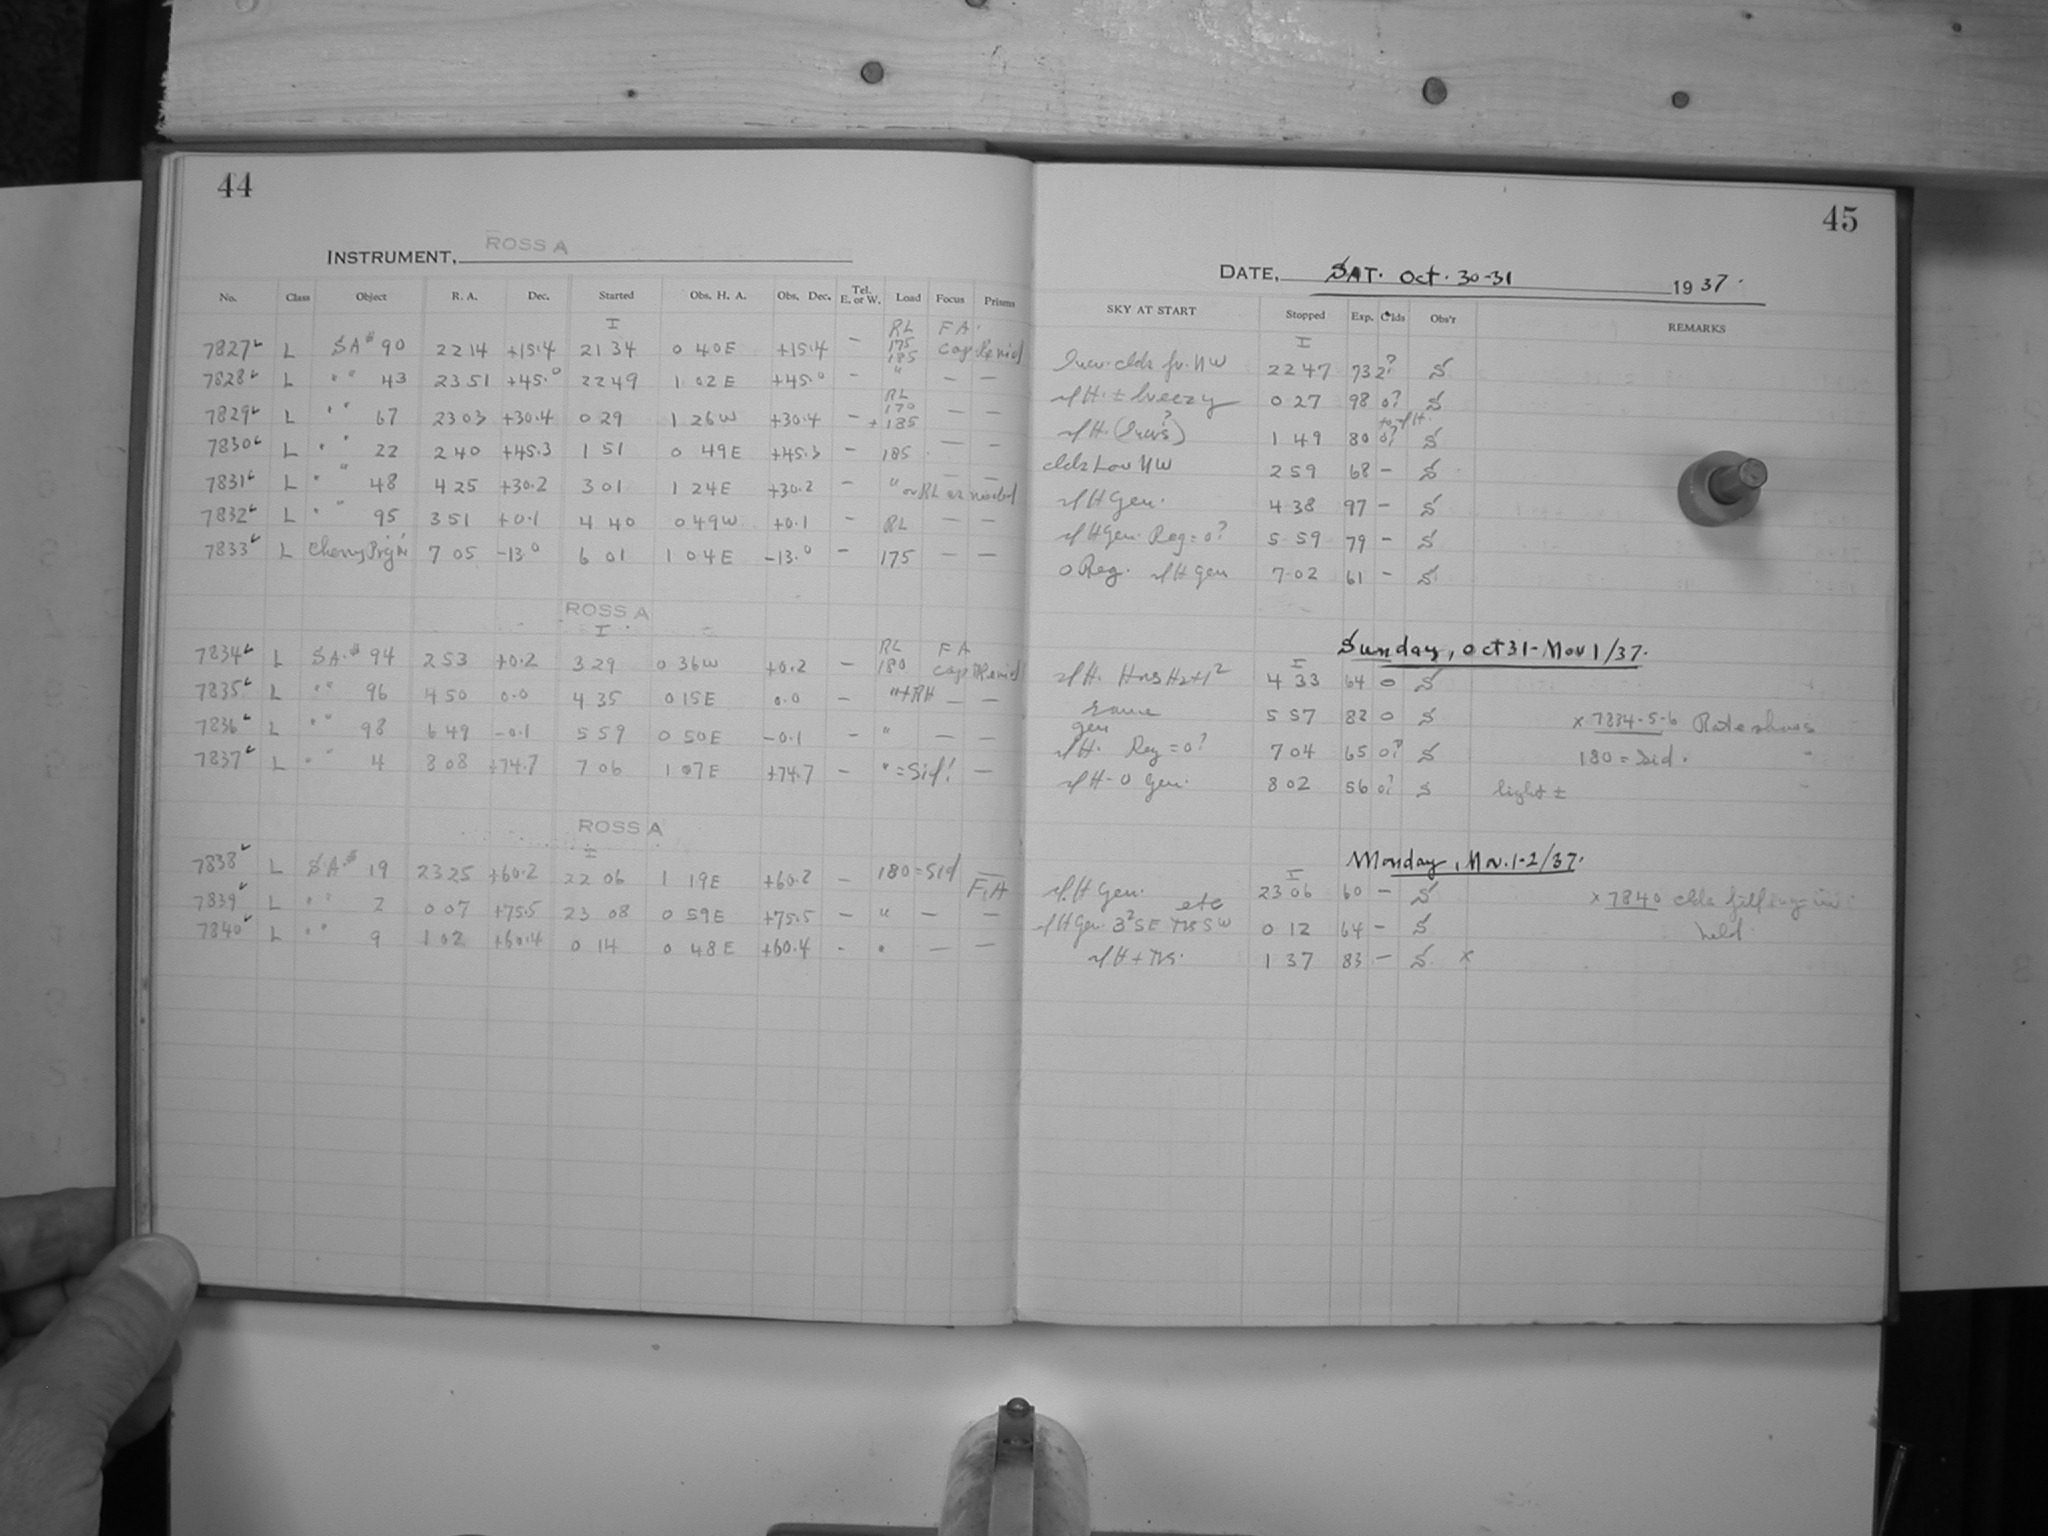 44
INSTRUMENT, ROSS A
No. Class Object R. A. Dec. Started Obs. H. A. Obs. Dec. Tel. E. or W. Load Focus Prisms
I RL FA.
7827 L SA# 90 22 14 +15.4 21 34 0 40E +15.4 – 175 185 Cap
7828 L " " 43 23 51 +45.0 22 49 1 02E +45.0 – " – –
RL
7829 L " " 67 23 03 +30.4 0 29 1 26W +30.4 – 170 + 185 – –
7830 L " " 22 2 40 +45.3 1 51 0 49E +45.3 – 185 – –
7831 L " " 48 4 25 +30.2 3 01 1 24E +30.2 – " or RL as needed – –
7832 L " " 95 3 51 +0.1 4 40 0 49W +0.1 – RL – –
7833 L 7 05 –13.0 6 01 1 04E –13.0 – 175 – –
ROSS A
I RL FA
7834 L SA.# 94 2 53 +0.2 3 29 0 36W +0.2 – 180 Cap
7835 L " " 96 4 50 0.0 4 35 0 15E 0.0 – "+RH – –
7836 L " " 98 6 49 –0.1 5 59 0 50E –0.1 – " – –
7837 L " " 4 8 08 +74.7 7 06 1 07E +74.7 – " = Sid! –
ROSS A
I
7838 L SA.# 19 23 25 +60.2 22 06 1 19E +60.2 – 180 = Sid F, A –
7839 L " " 2 0 07 +75.5 23 08 0 59E +75.5 – " – –
7840 L " " 9 1 02 +60.4 0 14 0 48E +60.4 – " – –
45
DATE, SAT. Oct. 30-31 1937.
SKY AT START Stopped Exp. Clds Obs'r REMARKS
I
clds fr. NW 22 47 73 2? S
± breezy 0 27 98 0? S
1 49 80 0? S
clds Low NW 2 59 68 – S
Gen. 4 38 97 – S
Gen. Reg = 0? 5 59 79 – S
0 Reg. gen 7 02 61 – S
Sunday, Oct 31-Nov 1/37.
I
4 33 64 0 S
same 5 57 82 0 S x 7834-5-6 Rate shows
gen Reg = 0? 7 04 65 0? S 180 = Sid.
0 Gen. 8 02 56 0? S light ±
Monday, Nov. 1-2/37.
I
Gen. 23 06 60 – S x 7840 clds filling in
Gen. SE SW etc 0 12 64 – S held
1 37 83 – S x